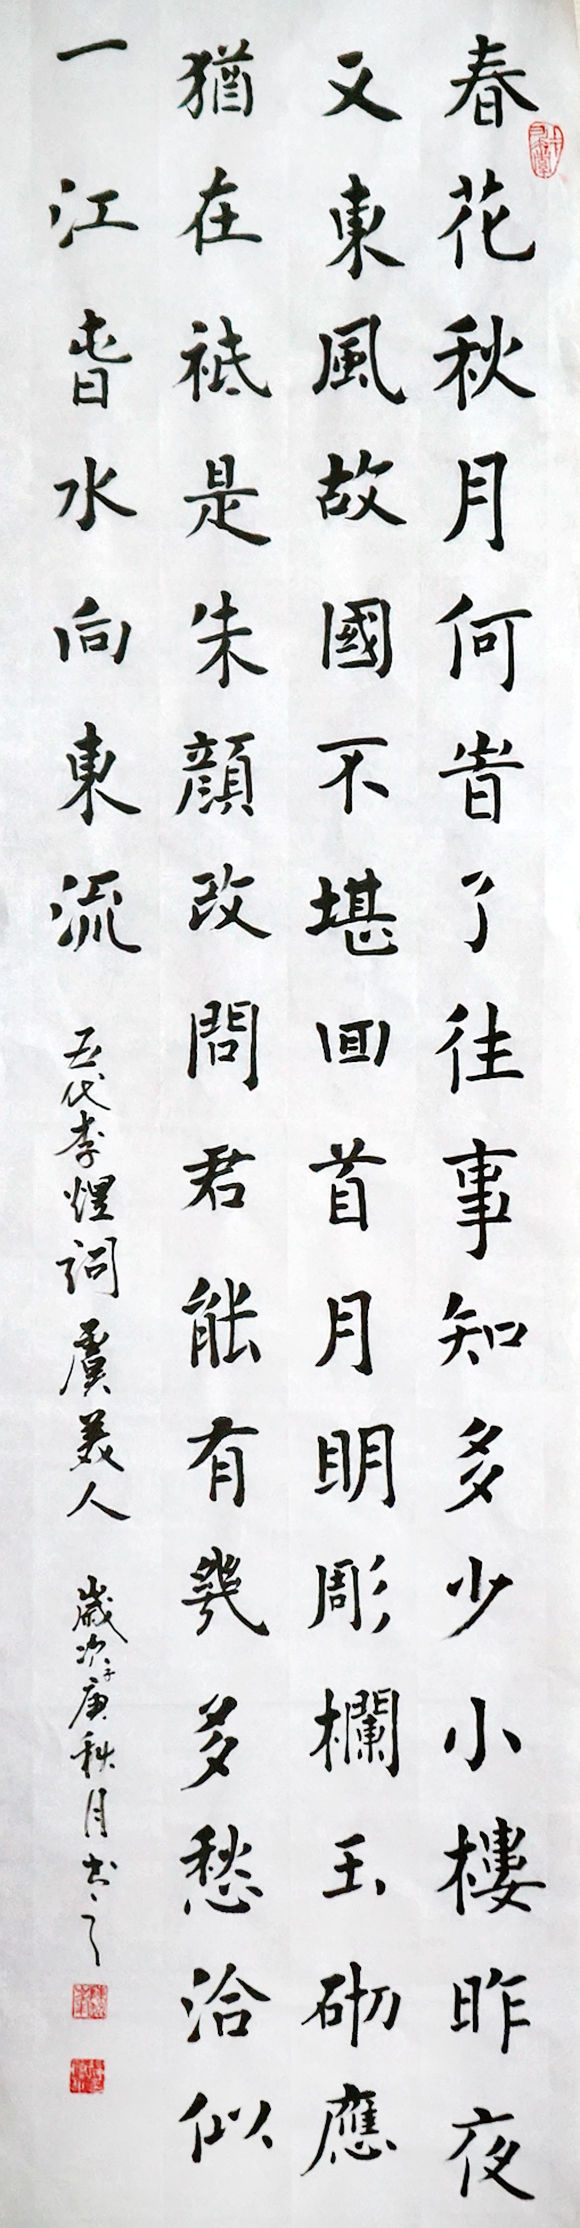 春花秋月何旹了往事知多少小樓昨夜
又東風故國不堪囬首月明彫欄玉砌應
猶在祗是朱顔改問君能有幾多愁洽似
一江旾水向東流
五代李煜詞虞美人
歲次庚子秋月书之